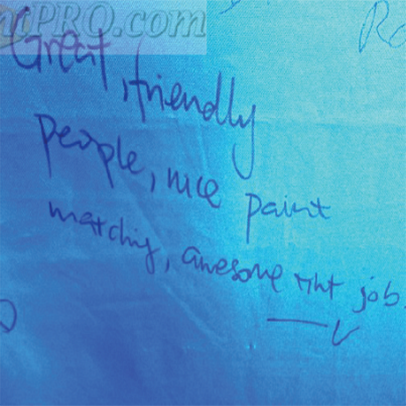 ntPRO.com
Great, friendly
people, nice paint
matching, awesome job.